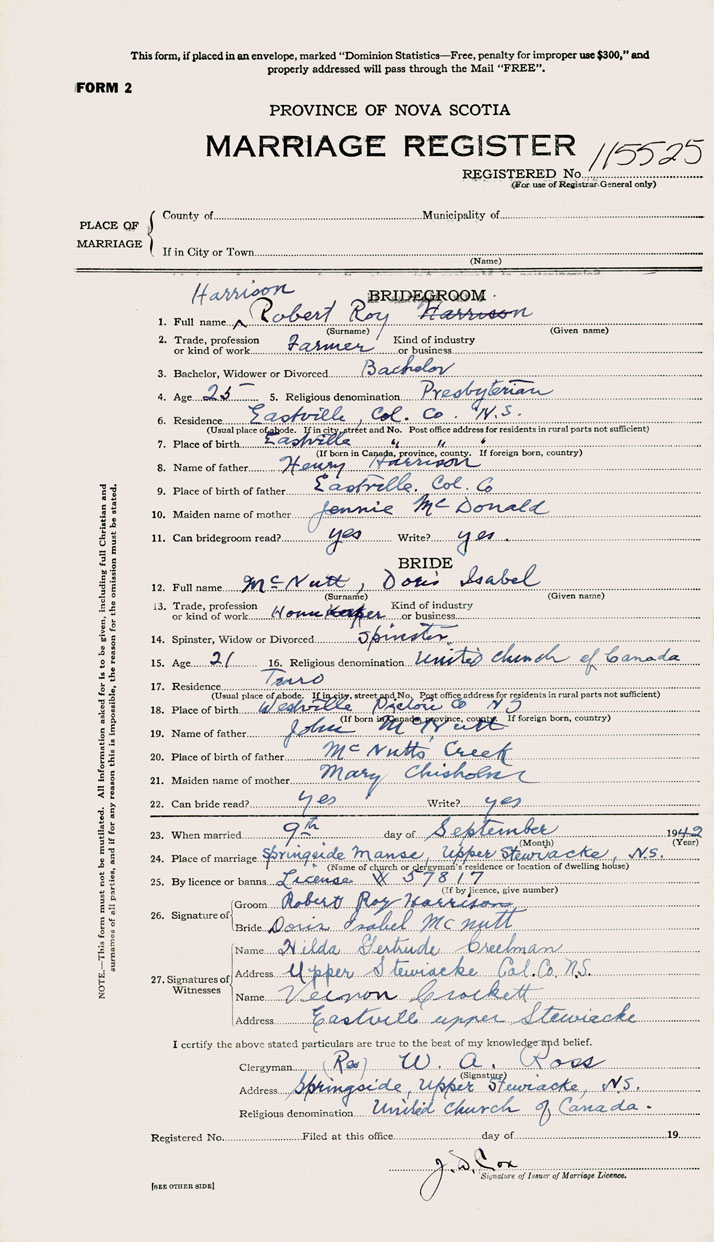 This form, if placed in an envelope, marked "Dominion Statistics—Free, penalty for improper use $300," and
properly addressed will pass through the Mail "FREE".
FORM 2
PROVINCE OF NOVA SCOTIA
MARRIAGE REGISTER
115525
REGISTERED No.
(For use of Registrar General only)
PLACE OF MARRIAGE
County of Municipality of
If in City or Town
(Name)
BRIDEGROOM
Harrison
1. Full name Robert Roy Harrison
(Surname) (Given name)
2. Trade, profession or kind of work Farmer Kind of industry or business
3. Bachelor, Widower or Divorced Bachelor
4. Age 25 5. Religious denomination Presbyterian
6. Residence Eastville, Col. Co. N.S.
(Usual place of abode. If in city, street and No. Post office address for residents in rural parts not sufficient)
7. Place of birth Eastville " " "
(If born in Canada, province, county. If foreign born, country)
8. Name of father Henry Harrison
9. Place of birth of father Eastville. Col. Co
10. Maiden name of mother Jennie McDonald
11. Can bridegroom read? yes Write? yes.
BRIDE
12. Full name McNutt, Doris Isabel
(Surname) (Given name)
13. Trade, profession or kind of work Kind of industry or business
14. Spinster, Widow or Divorced Spinster.
15. Age 21 16. Religious denomination United Church of Canada
17. Residence Truro
(Usual place of abode. If in city, street and No. Post office address for residents in rural parts not sufficient)
18. Place of birth Westville Pictou Co NS
(If born in Canada, province, county. If foreign born, country)
19. Name of father John McNutt
20. Place of birth of father McNutts Creek
21. Maiden name of mother Mary Chisholm
22. Can bride read? yes Write? yes
23. When married 9th day of September 1942
(Month) (Year)
24. Place of marriage Springside Manse, Upper Stewiacke, N.S.
(Name of church or clergyman's residence or location of dwelling house)
25. By licence or banns License # 57817
(If by licence, give number)
26. Signature of Groom Robert Roy Harrison
Bride Doris Isabel McNutt
27. Signatures of Witnesses
Name Hilda Gertrude Creelman
Address Upper Stewiacke Col. Co. N.S.
Name Vernon Crockett
Address Eastvill upper Stewiacke
I certify the above stated particulars are true to the best of my knowledge and belief.
Clergyman (Rev) W. A. Ross
(Signature)
Address Springside, Upper Stewiacke, N.S.
Religious denomination United Church of Canada.
Registered No. Filed at this office day of 19
J. D. Cox
Signature of Issuer of Marriage Licence.
[SEE OTHER SIDE]
NOTE.—This form must not be mutilated. All information asked for is to be given, including full Christian and
surnames of all parties, and if for any reason this is impossible, the reason for the omission must be stated.